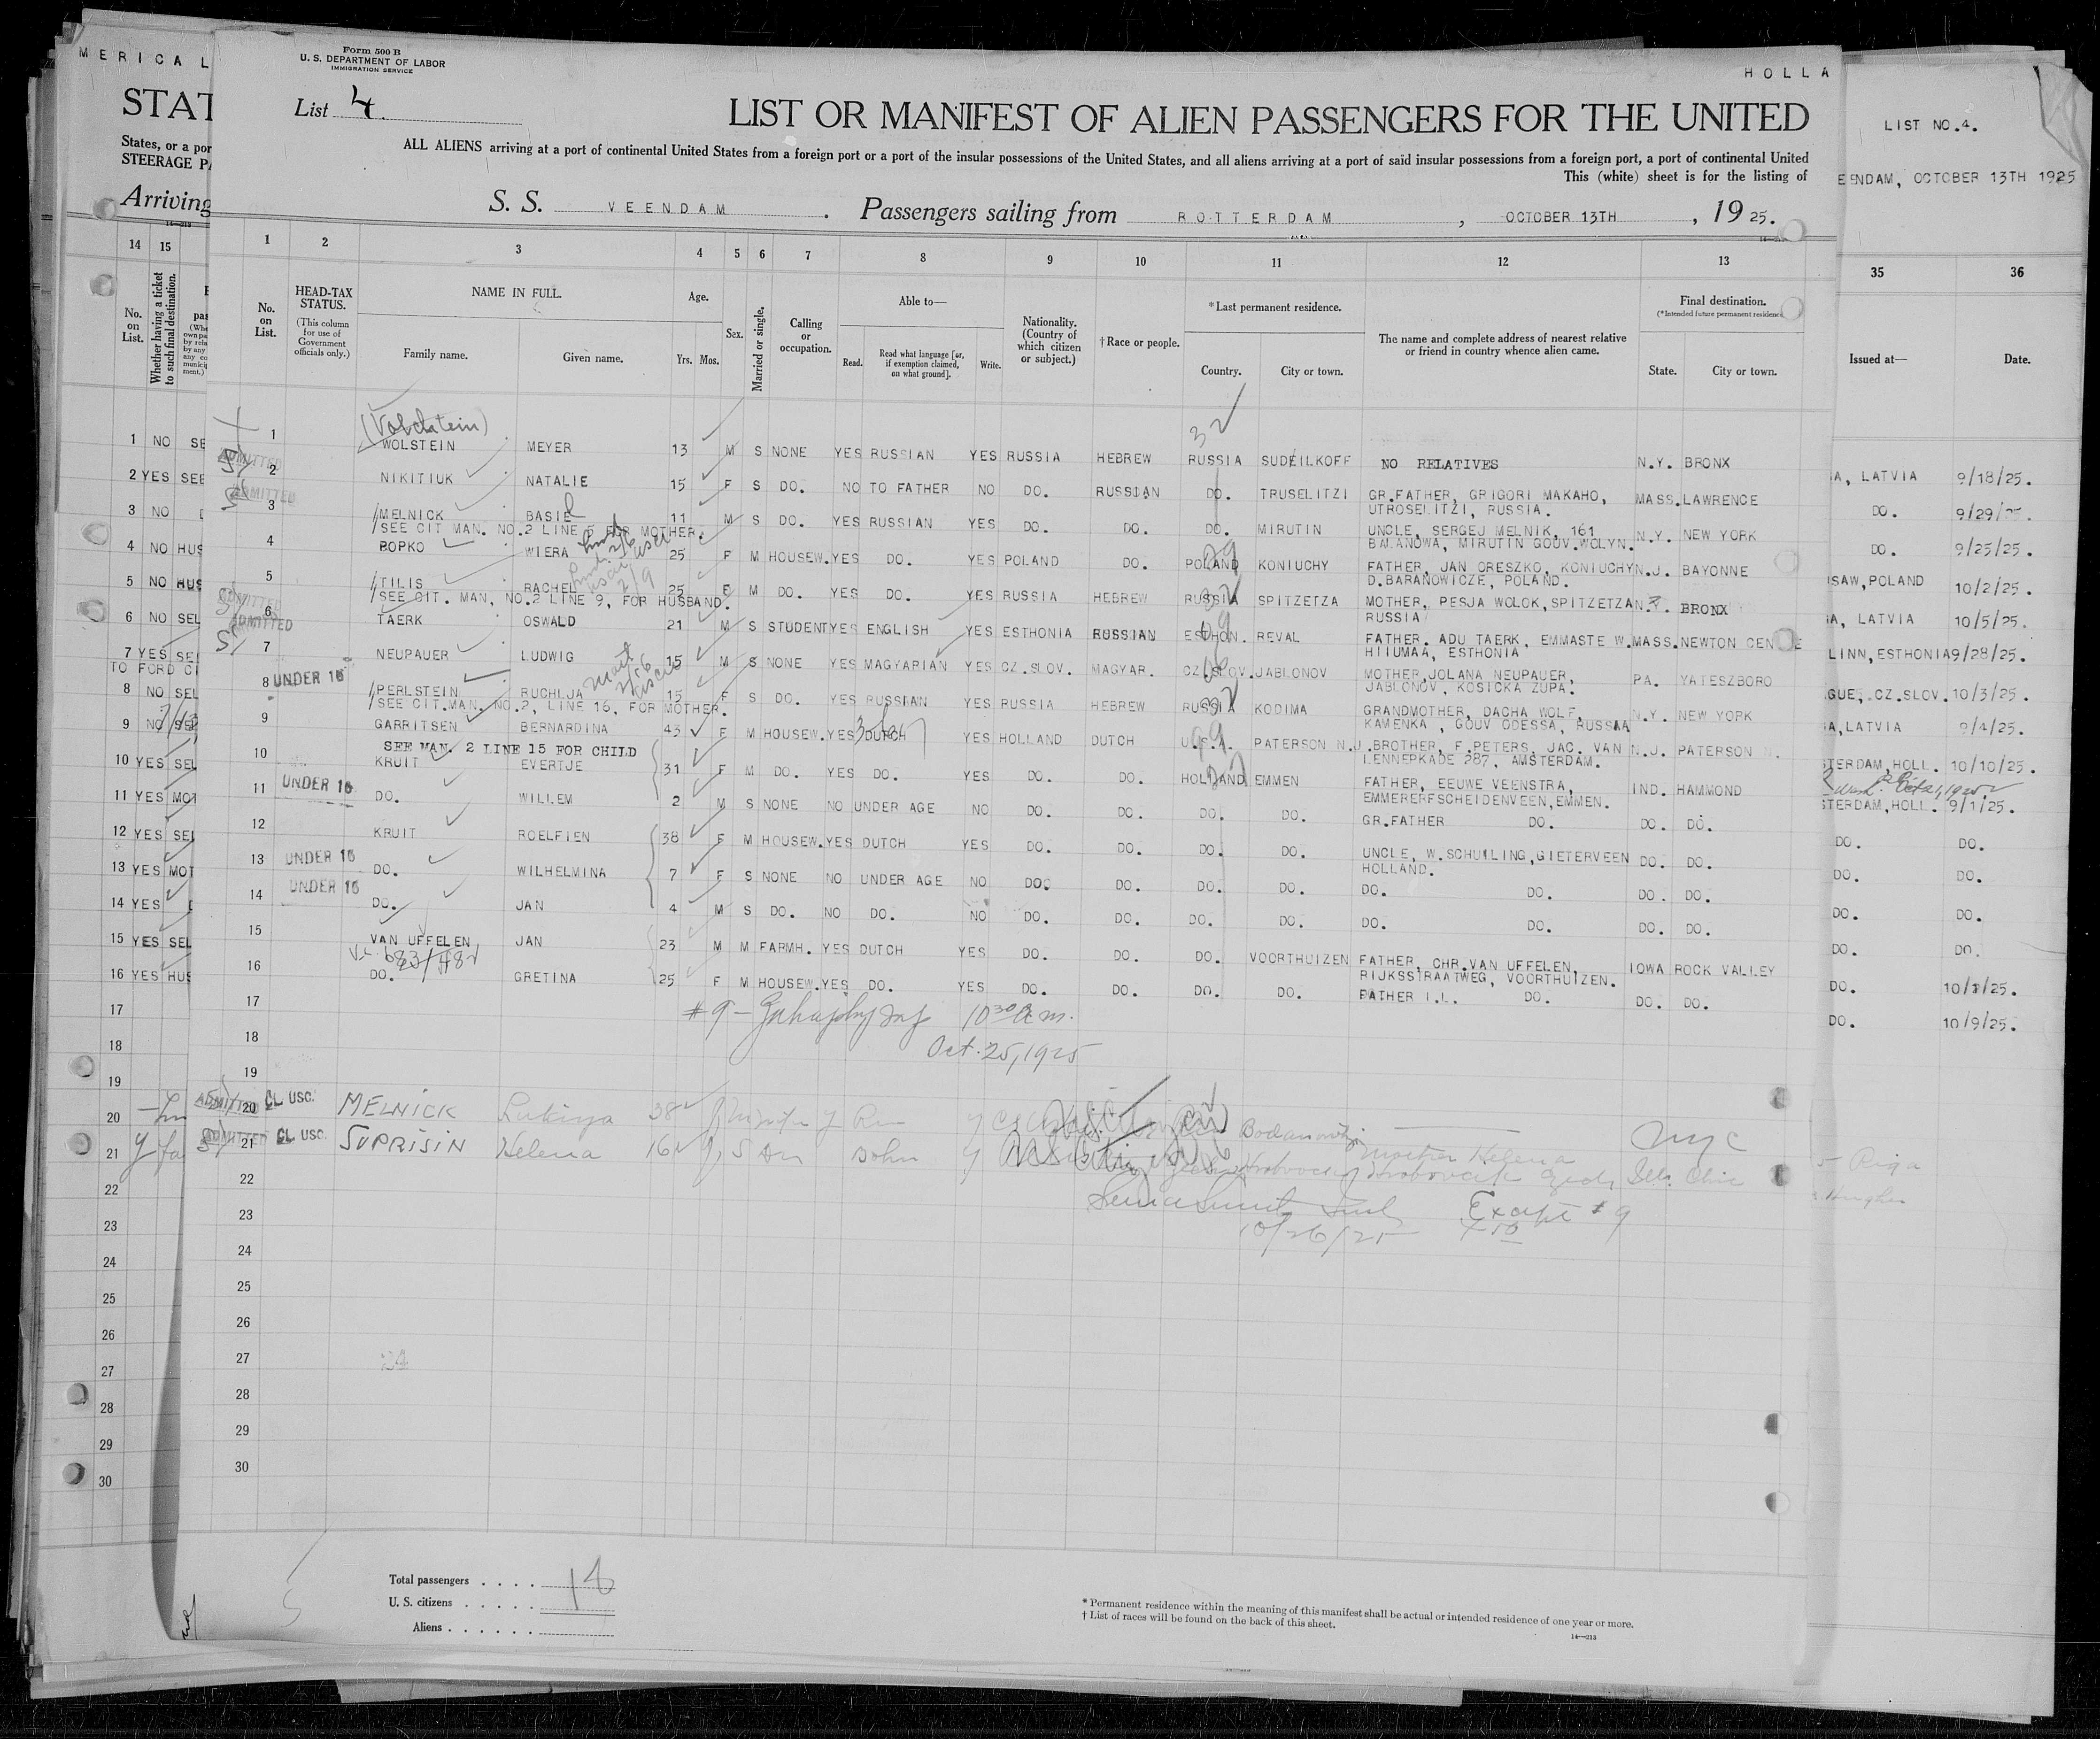 MERICA L
STAT
States, or a por
STEERAGE PA
Arriving
Form 500 B
U. S. DEPARTMENT OF LABOR
IMMIGRATION SERVICE
List 4.
HOLLA
LIST OR MANIFEST OF ALIEN PASSENGERS FOR THE UNITED
ALL ALIENS arriving at a port of continental United States from a foreign port or a port of the insular possessions of the United States, and all aliens arriving at a port of said insular possessions from a foreign port, a port of continental United
This (white) sheet is for the listing of
S. S. VEENDAM. Passengers sailing from ROTTERDAM, OCTOBER 13TH, 1925.
LIST NO.4.
EENDAM, OCTOBER 13TH 1925
14 15 1 2 3 4 5 6 7 8 9 10 11 12 13 35 36
No. on List. Whether having a ticket to such final destination.
No. on List. HEAD-TAX STATUS. (This column for use of Government officials only.) NAME IN FULL. Family name. Given name. Age. Yrs. Mos. Sex. Married or single. Calling or occupation. Able to— Read. Read what language [or, if exemption claimed, on what ground]. Write. Nationality. (Country of which citizen or subject.) †Race or people. *Last permanent residence. Country. City or town. The name and complete address of nearest relative or friend in country whence alien came. Final destination. (*Intended future permanent residence State. City or town. Issued at— Date.
(Volchstein)
32
1 NO SE 1 WOLSTEIN MEYER 13 M S NONE YES RUSSIAN YES RUSSIA HEBREW RUSSIA SUDEILKOFF NO RELATIVES N.Y. BRONX A, LATVIA 9/18/25.
ADMITTED
2 YES SEE 2 NIKITIUK NATALIE 15 F S DO. NO TO FATHER NO DO. RUSSIAN DO. TRUSELITZI GR.FATHER, GRIGORI MAKAHO, UTROSELITZI, RUSSIA. MASS. LAWRENCE DO. 9/29/
ADMITTED
3 NO 3 MELNICK BASIL 11 M S DO. YES RUSSIAN YES DO. DO. DO. MIRUTIN UNCLE, SERGEJ MELNIK, 161 BALANOWA, MIRUTIN GOUV.WOLYN. N.Y. NEW YORK DO. 9/25/25.
/SEE CIT MAN. NO.2 LINE 5 FOR MOTHER.
4 NO HUS 4 BOPKO WIERA 25 F M HOUSEW. YES DO. YES POLAND DO. POLAND KONIUCHY FATHER, JAN ORESZKO, KONIUCHY D.BARANOWICZE, POLAND. N.J. BAYONNE SAW,POLAND 10/2/25.
5 NO HUS 5 /TILIS RACHEL 25 F M DO. YES DO. YES RUSSIA HEBREW RUSSIA SPITZETZA MOTHER, PESJA WOLOK, SPITZETZA RUSSIA N.Y. BRONX A, LATVIA 10/5/25.
/SEE CIT. MAN. NO.2 LINE 9, FOR HUSBAND.
ADMITTED
6 NO SEL 6 TAERK OSWALD 21 M S STUDENT YES ENGLISH YES ESTHONIA RUSSIAN ESTHON. REVAL FATHER. ADU TAERK, EMMASTE W. HIIUMAA, ESTHONIA MASS. NEWTON CEN E LINN, ESTHONIA 9/28/25.
ADMITTED
7 YES SEL 7 NEUPAUER LUDWIG 15 M S NONE YES MAGYARIAN YES CZ.SLOV. MAGYAR. CZ.SLOV. JABLONOV MOTHER,JOLANA NEUPAUER, JABLONOV, KOSICKA ZUPA. PA. YATESZBORO GUE, CZ.SLOV. 10/3/25.
TO FORD CI
8 NO SEL 8 UNDER 16 /PERLSTEIN RUCHLJA 15 F S DO. YES RUSSIAN YES RUSSIA HEBREW RUSSIA KODIMA GRANDMOTHER, DACHA WOLF, KAMENKA, GOUV ODESSA, RUSSIA N.Y. NEW YORK A,LATVIA 9/4/25.
/SEE CIT.MAN. NO.2, LINE 16, FOR MOTHER.
9 NO SEL 9 GARRITSEN BERNARDINA 43 F M HOUSEW. YES DUTCH YES HOLLAND DUTCH U.S.A. PATERSON N.J. BROTHER, F.PETERS, JAC. VAN LENNEPKADE 287, AMSTERDAM. N.J. PATERSON STERDAM, HOLL. 10/10/25.
SEE MAN. 2 LINE 15 FOR CHILD
10 YES SEL 10 KRUIT EVERTJE 31 F M DO. YES DO. YES DO. DO. HOLLAND EMMEN FATHER, EEUWE VEENSTRA, EMMERERFSCHEIDENVEEN, EMMEN. IND. HAMMOND STERDAM, HOLL. 9/1/25.
11 YES MOT 11 UNDER 16 DO. WILLEM 2 M S NONE NO UNDER AGE NO DO. DO. DO. DO. GR.FATHER DO. DO. DO. DO. DO.
12 YES SEL 12 KRUIT ROELFIEN 38 F M HOUSEW. YES DUTCH YES DO. DO. DO. DO. UNCLE, W.SCHUILING, GIETERVEEN HOLLAND. DO. DO. DO. DO.
13 YES MOT 13 UNDER 16 DO. WILHELMINA 7 F S NONE NO UNDER AGE NO DO. DO. DO. DO. DO. DO. DO. DO. DO. DO.
14 YES 14 UNDER 16 DO. JAN 4 M S DO. NO DO. NO DO. DO. DO. DO. DO. DO. DO. DO. DO. DO.
15 YES SEL 15 VAN UFFELEN JAN 23 M M FARMH. YES DUTCH YES DO. DO. DO. VOORTHUIZEN FATHER, CHR.VAN UFFELEN, RIJKSSTRAATWEG, VOORTHUIZEN. IOWA ROCK VALLEY DO. 10/1/25.
16 YES HUS 16 DO. GRETINA 25 F M HOUSEW. YES DO. YES DO. DO. DO. DO. FATHER I.L. DO. DO. DO. DO. 10/9/25.
17 17 # 9 10 30 a.m.
18 18 Oct. 25, 1925
19 19
20 ADMITTED 20 CL USC. MELNICK Lukiya 38 NYC Riga
21 ADMITTED 21 CL USC. SUPRISIN Helena 16 S Mother Helena Ills. Chic
22 22
23 23 Except # 9
10/26/25
24 24
25 25
26 26
27 27
28 28
29 29
30 30
Total passengers . . . .
U. S. citizens . . . . .
Aliens . . . . . .
* Permanent residence within the meaning of this manifest shall be actual or intended residence of one year or more.
† List of races will be found on the back of this sheet.
14—213